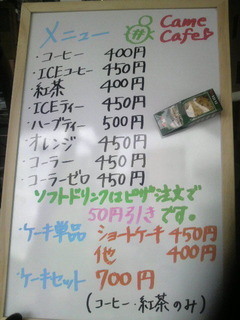 メニュー
Came
Cafe
・コーヒー 400円
・ICEコーヒー 450円
・紅茶 400円
・ICEティー 450円
・ハーブティー 500円
・オレンジ 450円
・コーラー 450円
・コーラーゼロ 450円
ソフトドリンクはピザ注文で
50円引きです。
・ケーキ単品 ショートケーキ 450円
他 400円
・ケーキセット 700円
(コーヒー・紅茶のみ)